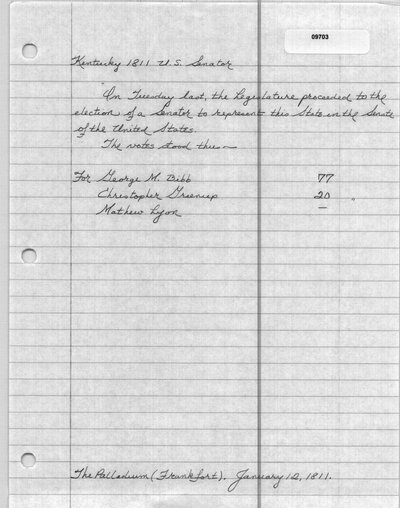 09703
Kentucky 1811 U.S. Senator
On Tuesday last, the Legislature proceeded to the
election of a Senator to represent this State in the Senate
of the United States.
The votes stood thus—
For George M. Bibb 77
Christopher Greenup 20 "
Mathew Lyon —
The Palladium (Frankfort). January 12, 1811.